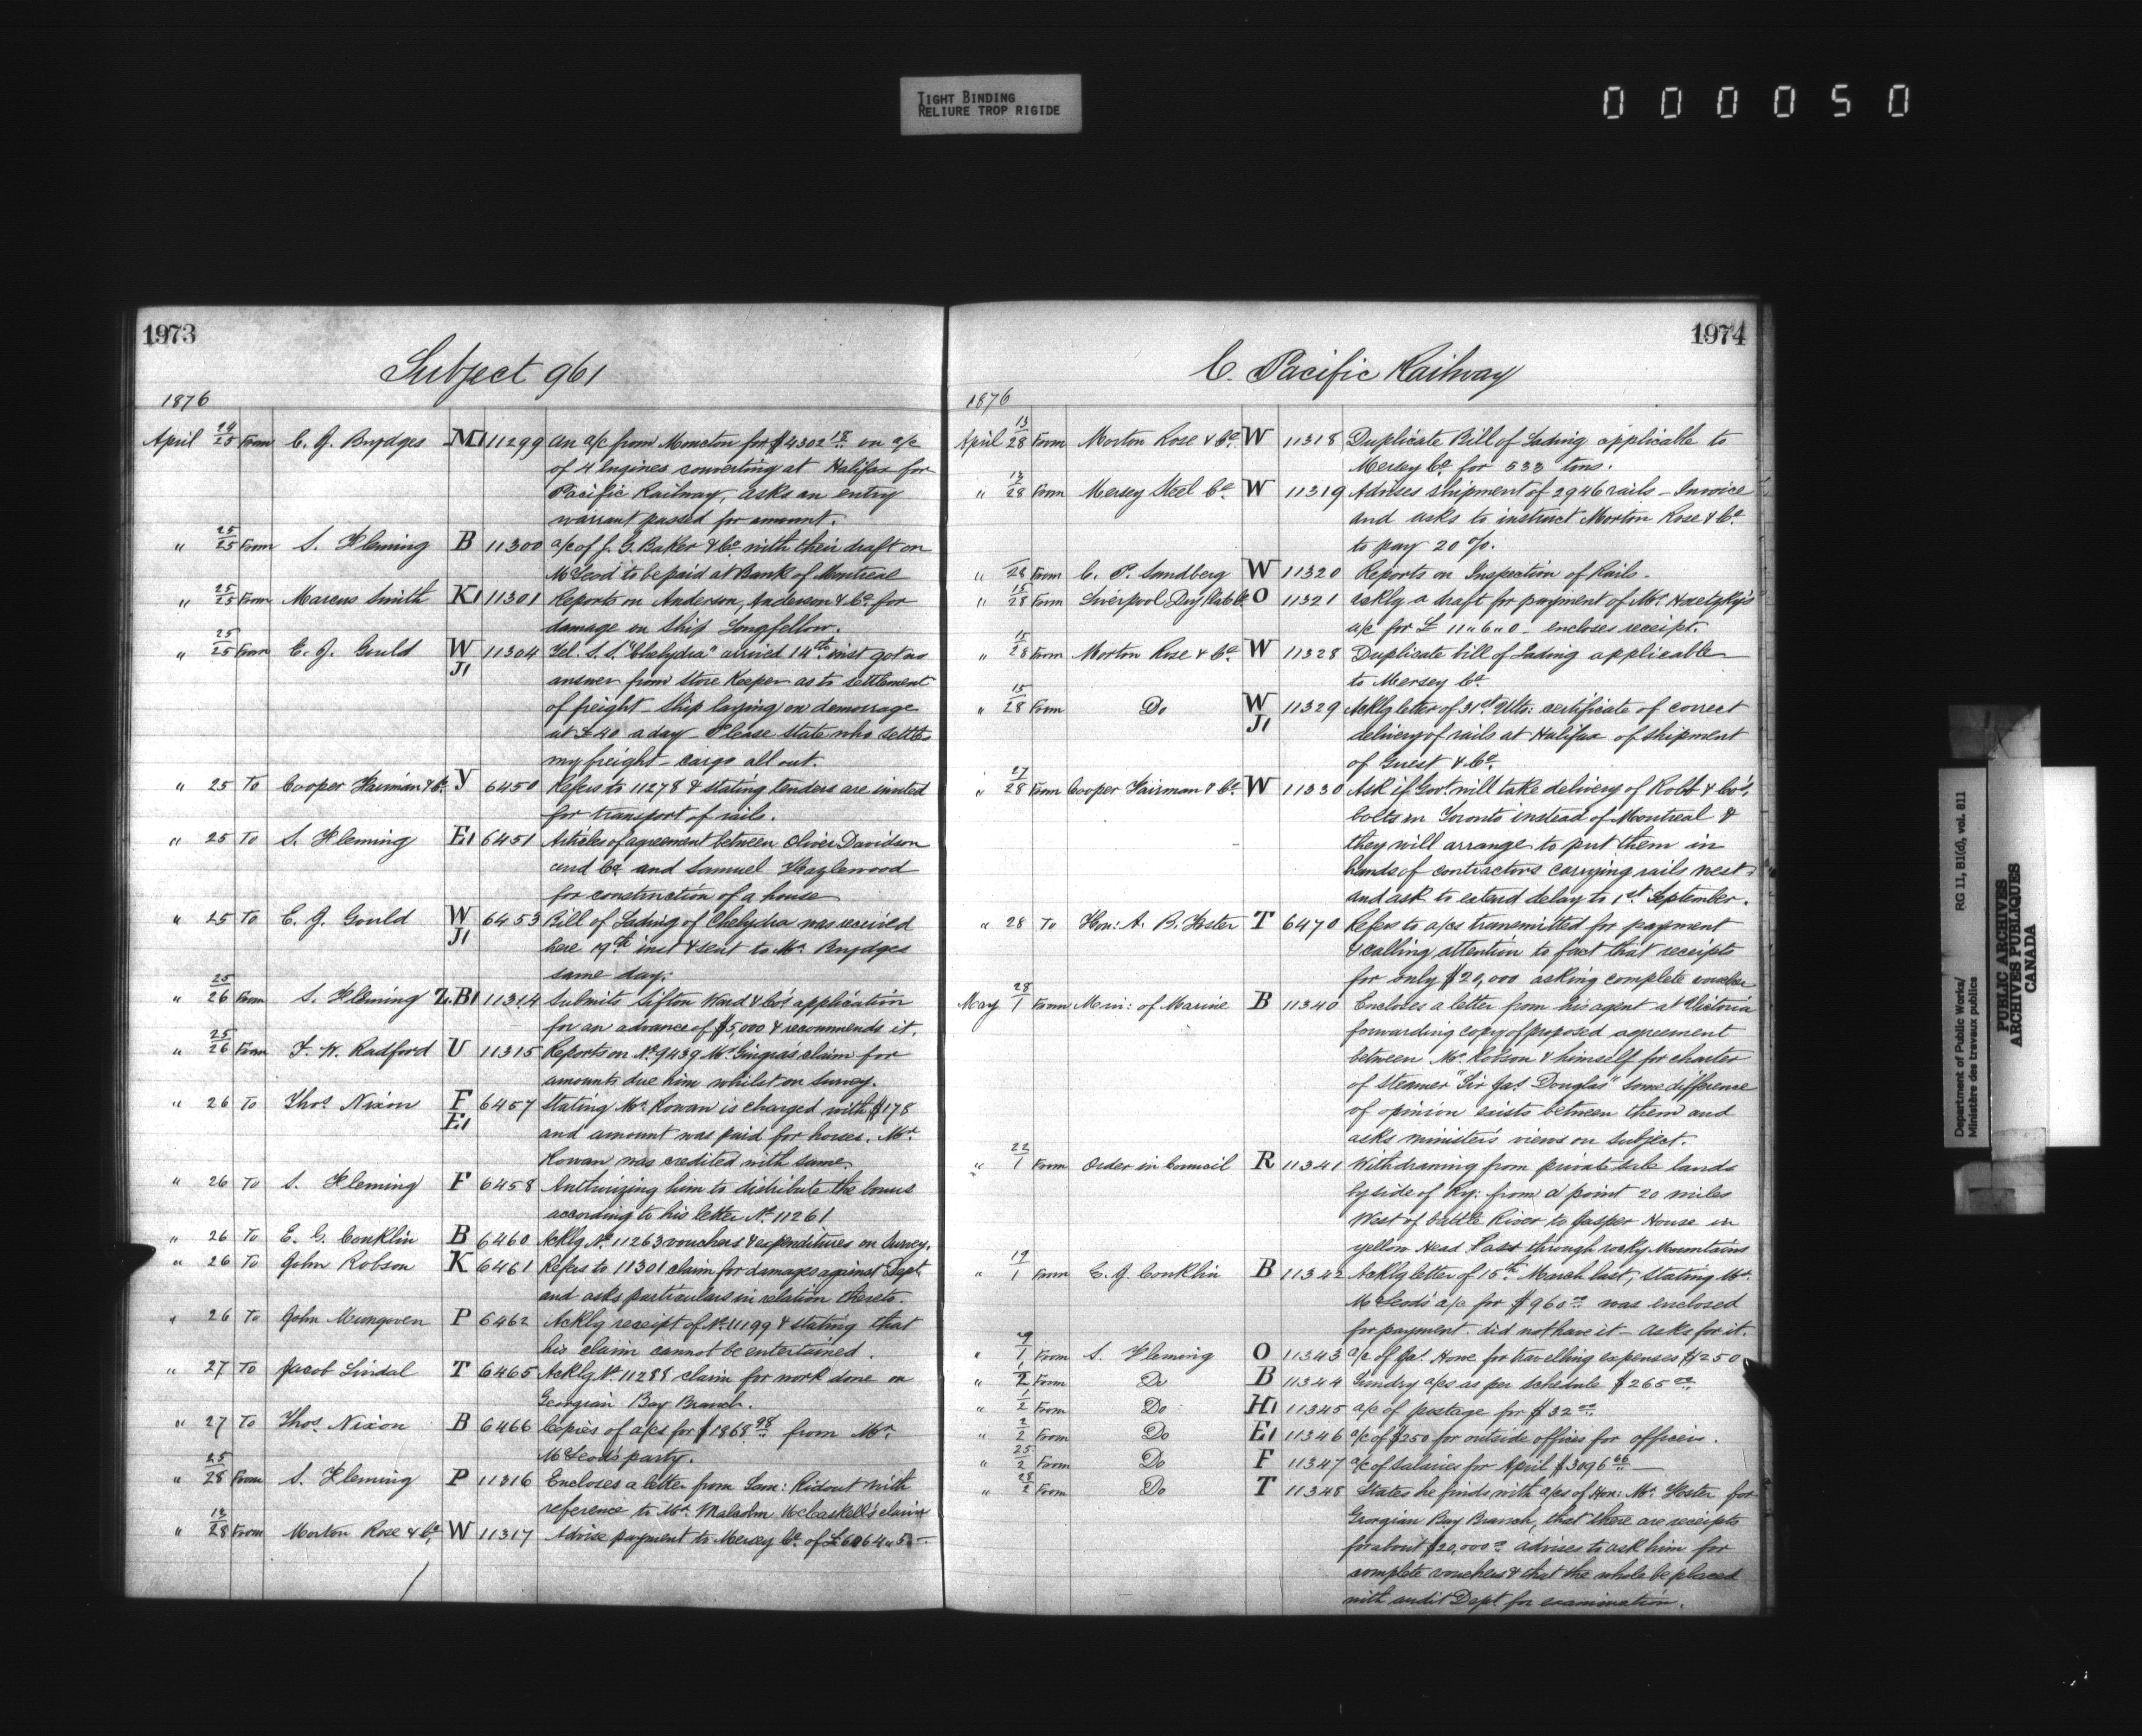 TIGHT BINDING
RELIURE TROP RIGIDE
000050
1973
Subject 961
1876
April 24/25 From C. J. Brydges M1 11299 An a/c from Moncton for $4302 18 on a/c
of 4 Engines converting at Halifax for
Pacific Railway, asks an entry
warrant passed for amount.
" 25/25 From S. Fleming B 11300 a/c of J. G. Baker & Co with their draft on
McLeod to be paid at Bank of Montreal
" 25/25 From Marcus Smith K1 11301 Reports on Anderson, Anderson & Co. for
damage on Ship Longfellow.
" 25/25 From E. J. Gould W J1 11304 Tel. S. S. "Chelydra" arrived 14th inst got no
answer from Store Keeper as to settlement
of freight - Ship laying on demorrage
at £40 a day Please state who settles
my freight - cargo all out.
" 25 To Cooper Fairman & Co. V 6450 Refers to 11278 & stating tenders are invited
for transport of rails.
" 25 To S. Fleming E1 6451 Articles of agreement between Oliver Davidson
and Co and Samuel Hazlewood
for construction of a house
" 25 To E. J. Gould W J1 6453 Bill of Lading of Chelydra was received
here 19th inst & sent to Mr. Brydges
same day.
" 25/26 From S. Fleming Z.B1 11314 Submits Sifton Ward & Co's application
for an advance of $5,000 & recommends it.
" 25/26 From F. W. Radford U 11315 Reports on No 9439 Mr Gingras claim for
amounts due him whilst on survey.
" 26 To Thos Nixon F E1 6457 Stating Mr. Rowan is charged with $178
and amount was paid for horses. Mr.
Rowan was credited with same.
" 26 To S. Fleming F 6458 Authorizing him to distribute the bonus
according to his letter No 11261
" 26 To E. G. Conklin B 6460 Acklg No 11263 vouchers & expenditures on Survey.
" 26 To John Robson K 6461 Refers to 11301 claim for damages against Dept
and asks particulars in relation thereto
" 26 To John Mungoven P 6462 Acklg receipt of No 11199 & stating that
his claim cannot be entertained.
" 27 To Jacob Lindal T 6465 Acklg No 11288 claim for work done on
Georgian Bay Branch.
" 27 To Thos. Nixon B 6466 Copies of a/cs for $1868 98 from Mr.
McLeod's party.
" 25/28 From S. Fleming P 11316 Encloses a letter from Sam: Ridout with
reference to Mr. Malcolm McCaskell's claim
" 13/28 From Morton Rose & Co. W 11317 Advise payment to Mersey Co. of
1974
C. Pacific Railway
1876
April 13/28 From Morton Rose & Co. W 11318 Duplicate Bill of Lading applicable to
Mersey Co. for 533 tons.
" 12/28 From Mersey Steel Co. W 11319 Advises shipment of 2946 rails - Invoice
and asks to instruct Morton Rose & Co.
to pay 20 %.
" /28 From C. P. Sandberg W 11320 Reports on Inspection of Rails.
" 15/28 From Liverpool O 11321 Acklg a draft for payment of Mr. Horetzky's
a/c for £ 11 " 6 " 0 - encloses receipt.
" 15/28 From Morton Rose & Co. W 11328 Duplicate bill of Lading applicable
to Mersey Co.
" 15/28 From Do W J1 11329 Acklg letter of 31st Ulto: certificate of correct
delivery of rails at Halifax of shipment
of Guest & Co.
" 27/28 From Cooper Fairman & Co. W 11330 Ask if Gov. will take delivery of Robb & Co's.
bolts in Toronto instead of Montreal &
they will arrange to put them in
hands of contractors carrying rails west
and ask to extend delay to 1st September.
" 28 To Hon: A. B. Foster T 6470 Refers to a/cs transmitted for payment
& calling attention to fact that receipts
for only $20,000 asking complete vouchers
May 28/1 From Min: of Marine B 11340 Encloses a letter from his agent at Victoria
forwarding copy of proposed agreement
between Mr. Robson & himself for charter
of steamer "Sir Jas Douglas" some difference
of opinion exists between them and
asks minister's views on subject.
" 22/1 From Order in Council R 11341 Withdrawing from private sale lands
by side of Ry: from a point 20 miles
West of battle River to Jasper House in
yellow Head Pass through rocky Mountains
" 19/1 From E. G. Conklin B 11342 Acklg letter of 15th March last, stating Mr.
McLeod's a/c for $960 was enclosed
for payment. did not have it - asks for it.
" 29/1 From S. Fleming O 11343 a/c of Jas. Howe for travelling expenses $250
" 1/2 From Do B 11344 Sundry a/cs as per schedule $265
" 1/2 From Do H1 11345 a/c of postage for $32
" 2/2 From Do E1 11346 a/c of $250 for outside offices for officers.
" 25/2 From Do F 11347 a/c of salaries for April $3096 66
" 28/2 From Do T 11348 States he finds with a/cs of Hon: Mr. Foster for
Georgian Bay Branch, that there are receipts
for about $20,000 advises to ask him for
complete vouchers & that the whole be placed
with audit Dept. for examination.
Department of Public Works/
Ministère des travaux publics
RG 11, B1(d), vol. 811
PUBLIC ARCHIVES
ARCHIVES PUBLIQUES
CANADA